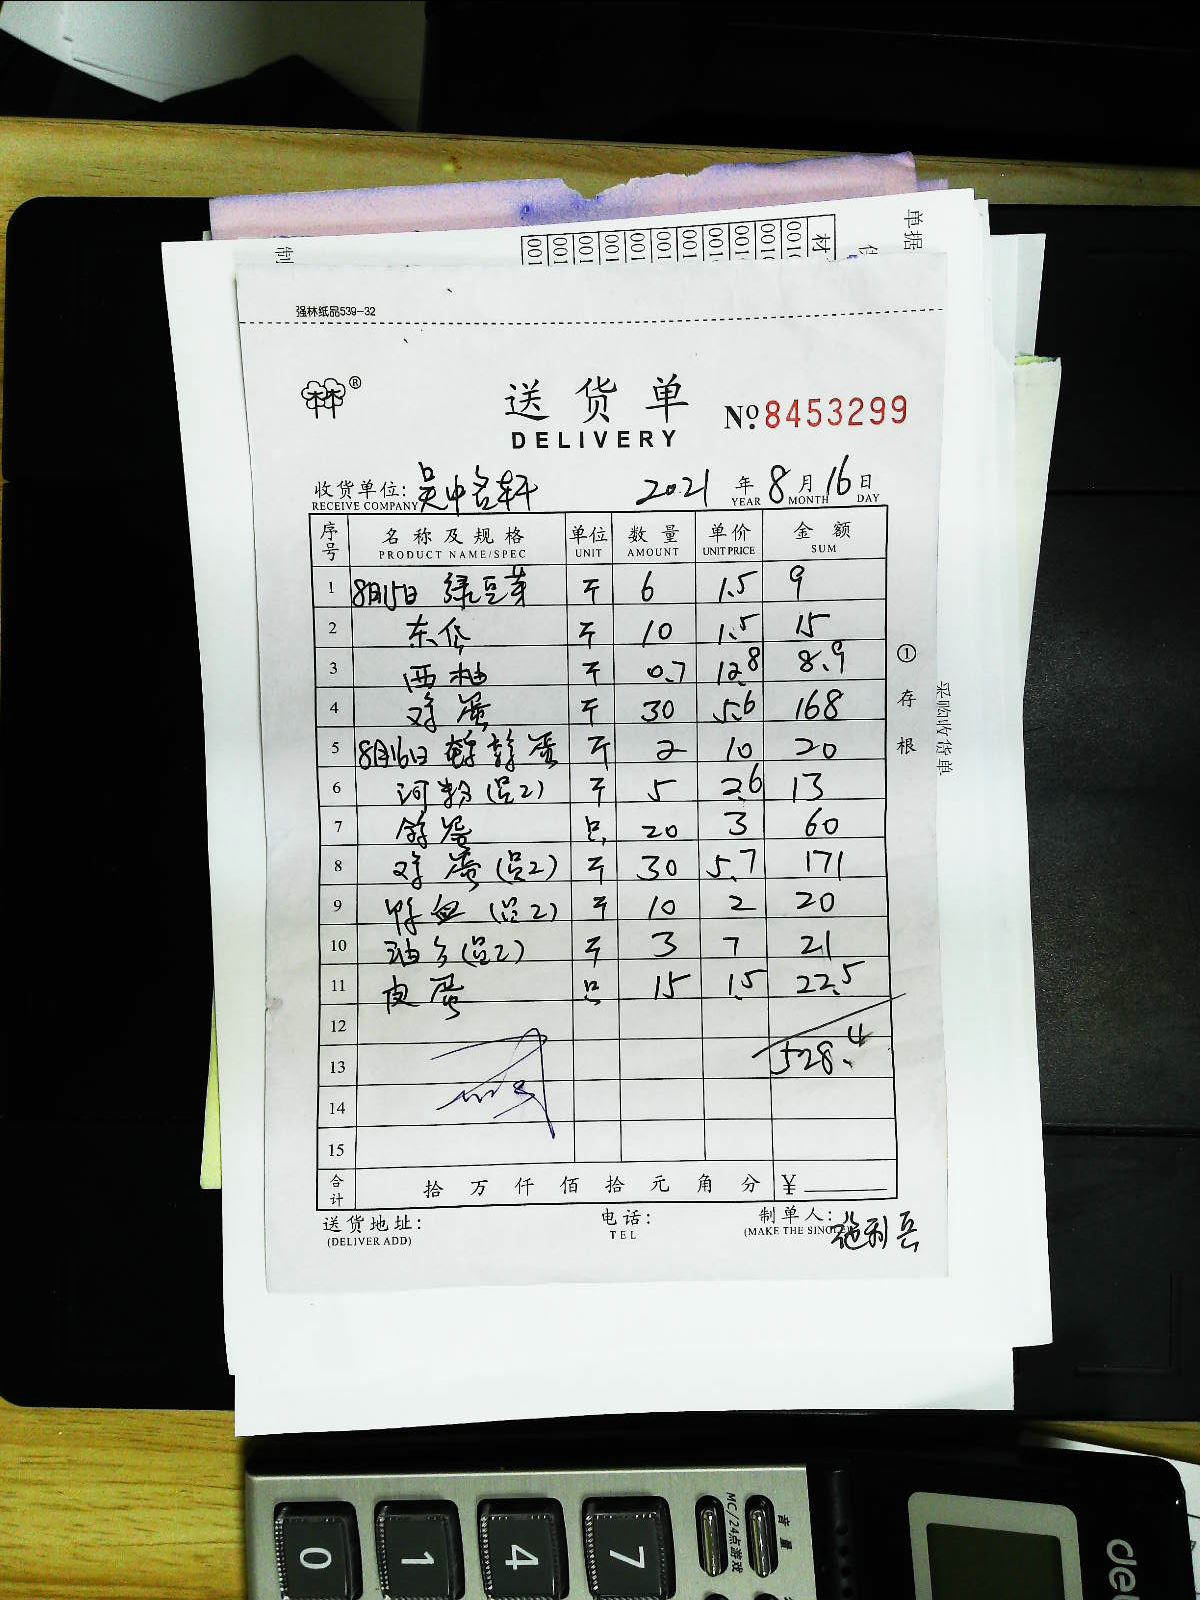 单据
制
材
001 001 001 001 001 001 001 001 001 001 0010
强林纸品539-32
林®
送货单
DELIVERY
№ 8453299
收货单位: 吴中名轩 2021 年 8 月 16 日
RECEIVE COMPANY YEAR MONTH DAY
序号 名称及规格 单位 数量 单价 金额
PRODUCT NAME/SPEC UNIT AMOUNT UNIT PRICE SUM
1 8月15日 绿豆芽 斤 6 1.5 9
2 斤 10 1.5 15
3 西柚 斤 0.7 12.8 8.9
4 鸡蛋 斤 30 5.6 168
5 8月16日 鹌鹑蛋 斤 2 10 20
6 河粉(吕2) 斤 5 2.6 13
7 只 20 3 60
8 鸡蛋(吕2) 斤 30 5.7 171
9 鸭血(吕2) 斤 10 2 20
10 (吕2) 斤 3 7 21
11 皮蛋 只 15 1.5 22.5
12
13 528.4
14
15
合计 拾 万 仟 佰 拾 元 角 分 ¥
送货地址: 电话: 制单人: 施利兵
(DELIVER ADD) TEL (MAKE THE SINGLE)
①存根
采购收货单
0 1 4 7
MC/24点游戏
音量
de